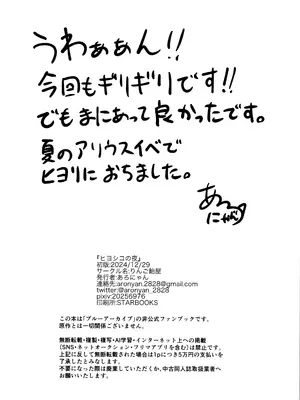 うわぁぁん!!
今回もギリギリです!!
でもまにあって良かったです。
夏のアリウスイベで
ヒヨリにおちました。
あろ
にゃん
『ヒヨシコの夜』
初版:2024/12/29
サークル名:りんご飴屋
発行者:あろにゃん
連絡先:aronyan.2828@gmail.com
twitter:@aronyan_2828
pixiv:20256976
印刷所:STARBOOKS
この本は「ブルーアーカイブ」の非公式ファンブックです。
原作とは一切関係ございません。
無断転載・複製・複写・AI学習・インターネット上への掲載
(SNS・ネットオークション・フリマアプリを含む)は禁止です。
上記に反して無断転載された場合は1pにつき5万円の支払いを
了承したとみなします。
不要になった際は廃棄していただくか、中古同人誌取扱業者へ
お願いいたします。